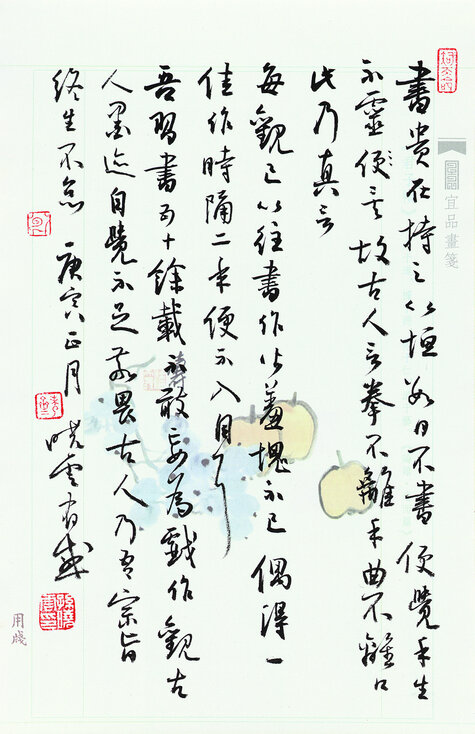 書貴在持之以恒數日不書便覺手生
不靈便之故古人言拳不離手曲不離口
此乃真言
每觀己以往書作皆羞愧不已偶得一
佳作時隔二年便不入目
吾習書五十餘載不敢妄為戲作觀古
人墨迹自覺不足敬畏古人乃吾宗旨
終生不怠 庚寅正月 曉雲有感
宜品畫箋
用牋